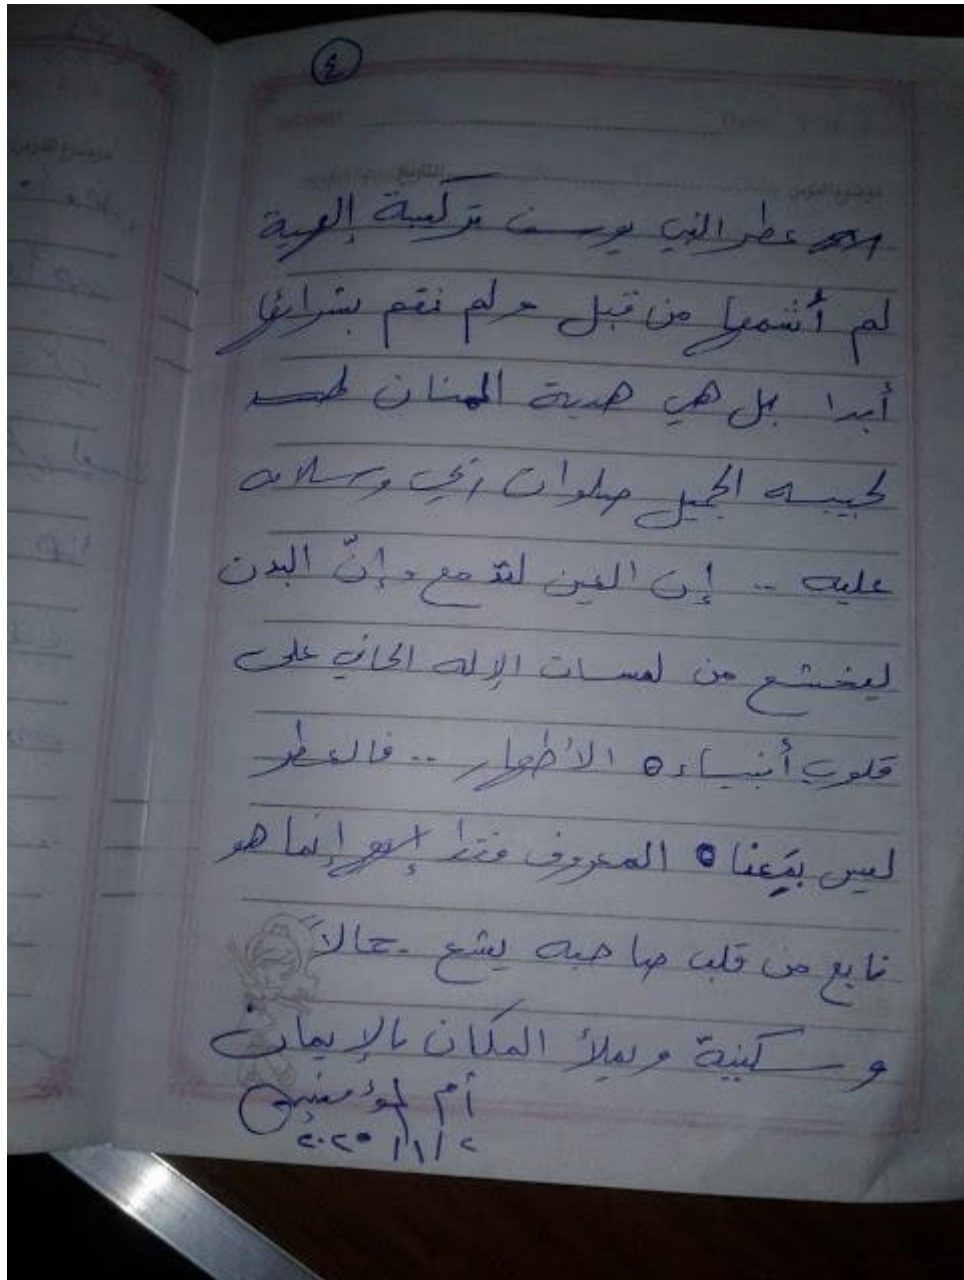 ٤
التاريخ
موضوع الدرس
عطر النبي يوسف تركيبة إلهية
لم أشمها من قبل ولم نقم بشرائها
أبدا بل هي هدية المنان
لحبيبه الجميل صلوات ربي وسلامه
عليه .. إن العين لتدمع وإنّ البدن
ليخشع من لمسات الإله الحاني على
قلوب أنبياءه الأطهار .. فالعطر
ليس بمعناه المعروف إنما هو
نابع من قلب صاحبه يشع جمالاً
وسكينة ويملأ المكان بالإيمان
أم المؤمنين
٢/١/٢٠٢٥